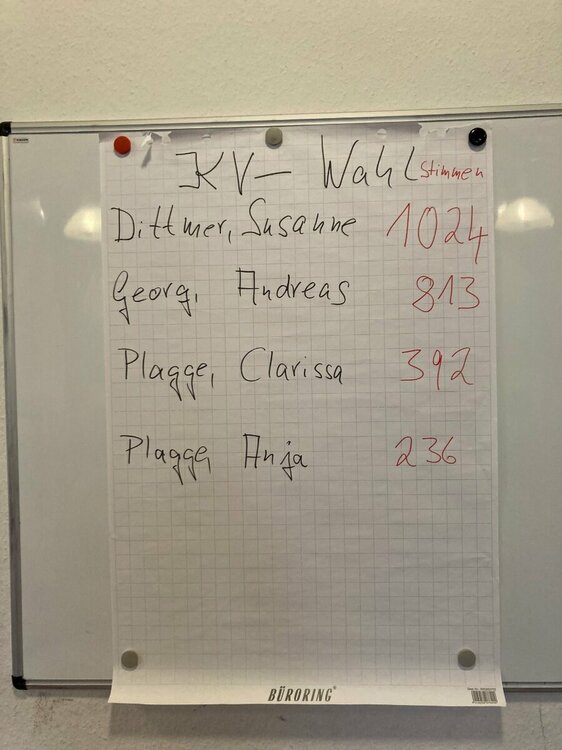 KV- Wahl Stimmen
Dittmer, Susanne 1024
Georg, Andreas 813
Plagge, Clarissa 392
Plagge, Anja 236
BÜRORING®